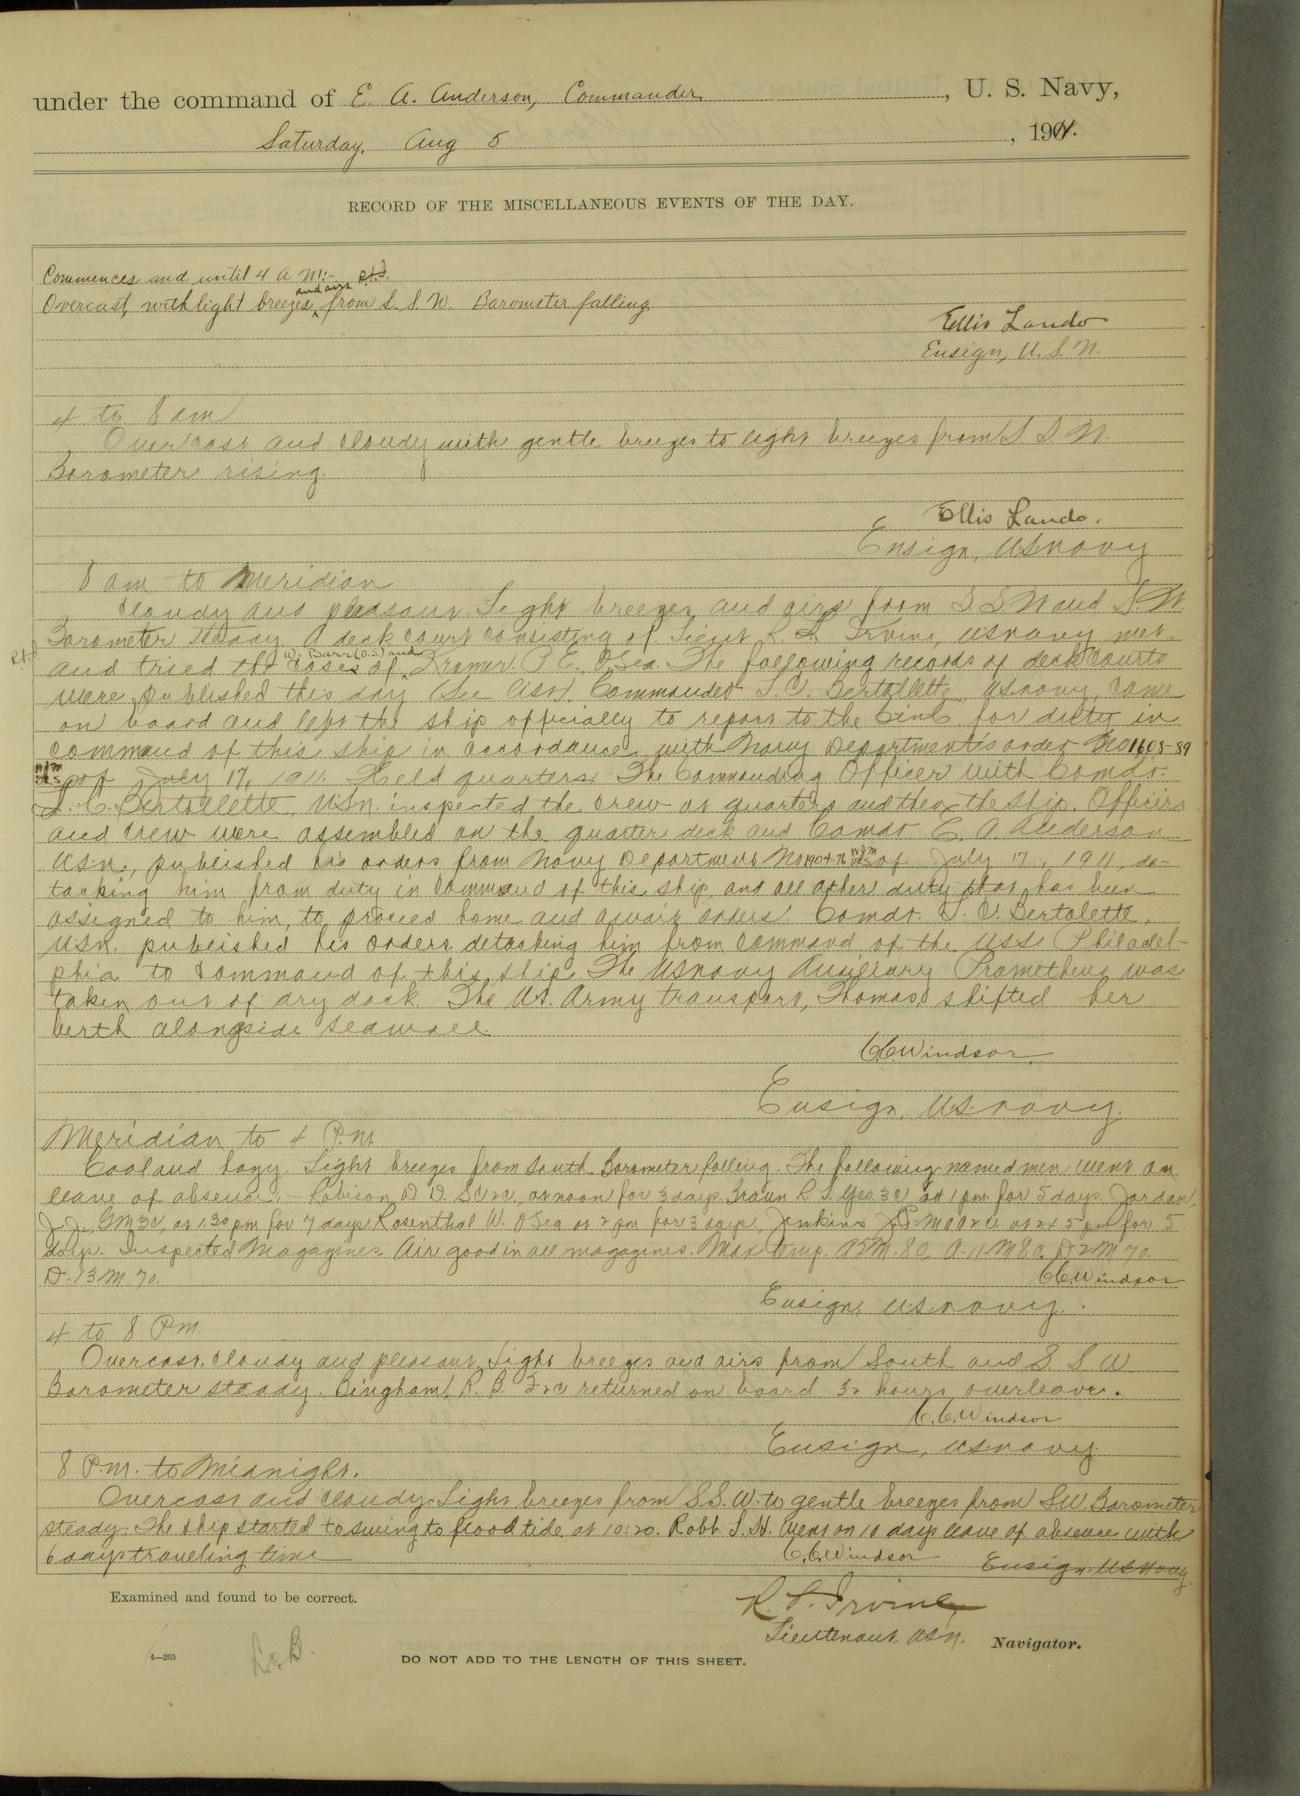 under the command of E. A. Anderson, Commander, U. S. Navy,
Saturday, Aug 5, 1911.
RECORD OF THE MISCELLANEOUS EVENTS OF THE DAY.
Commences and until 4 A M:-
Overcast, with light breezes and airs from S. S. W. Barometer falling.
Ellis Lando
Ensign, U. S. N.
4 to 8 am
Overcast and cloudy with gentle breezes to light breezes from S S W.
Barometer rising.
Ellis Lando.
Ensign, US Navy
8 am to Meridian
Cloudy and pleasant. Light breezes and airs from S S W and S W.
Barometer steady. A deck court consisting of Lieut R. L. Irvine, US Navy met
and tried the cases of W. Barr (O.S.) and Kramer P. E. O Sea. The following records of deck courts
were published this day (See list). Commander L. C. Bertollette, US Navy, came
on board and left the ship officially to report to the CinC for duty in
command of this ship in accordance with Navy Department's order No 1608-89
of July 17, 1911. Held quarters. The Commanding Officer with Comdr.
L. C. Bertollette, USN. inspected the crew at quarters and then the ship. Officers
and crew were assembled on the quarter deck and Comdr E. A. Anderson
USN., published his orders from Navy Department of July 17, 1911, de-
taching him from duty in command of this ship, and all other duty that has been
assigned to him, to proceed home and await orders. Comdr. L. C. Bertolette,
USN. published his orders detaching him from command of the USS Philadel-
phia to command of this ship. The US Navy Auxiliary Prometheus was
taken out of dry dock. The US. Army transport, Thomas, shifted her
berth alongside seawall.
C.C. Windsor
Ensign, US Navy.
Meridian to 4 P.M
Cool and hazy. Light breezes from South. Barometer falling. The following named men went on
leave of absence. - Robison, D. D. SC2c, at noon for 3 days. Braun R. S. Yeo. 3c at 1 pm for 5 days. Jordan,
J.J., GM3c, at 1:30 pm for 7 days. Rosenthal W. O Sea at 2 pm for 3 days. Jenkins at 2.45 pm for 5
days. Inspected Magazines. Air good in all magazines. Max temp. A5M-80. A-11-M 80. D2M 70.
D-13-M 70.
C.C. Windsor
Ensign, US Navy.
4 to 8 P.M.
Overcast, cloudy and pleasant. Light breezes and airs from South and S. S W
Barometer steady. Bingham, R. B. F2c returned on board 32 hours overleave.
C.C. Windsor
Ensign, US Navy.
8 P.M. to Midnight.
Overcast and cloudy. Light breezes from S.S.W. to gentle breezes from SW. Barometer
steady. The ship started to swing to flood tide at 10:20. Robb S. H. went on 10 days leave of absence with
6 days traveling time
C.C. Windsor Ensign US Navy
Examined and found to be correct.
R. L. Irvine,
Lieutenant, USN. Navigator.
4—265
L.C.B.
DO NOT ADD TO THE LENGTH OF THIS SHEET.